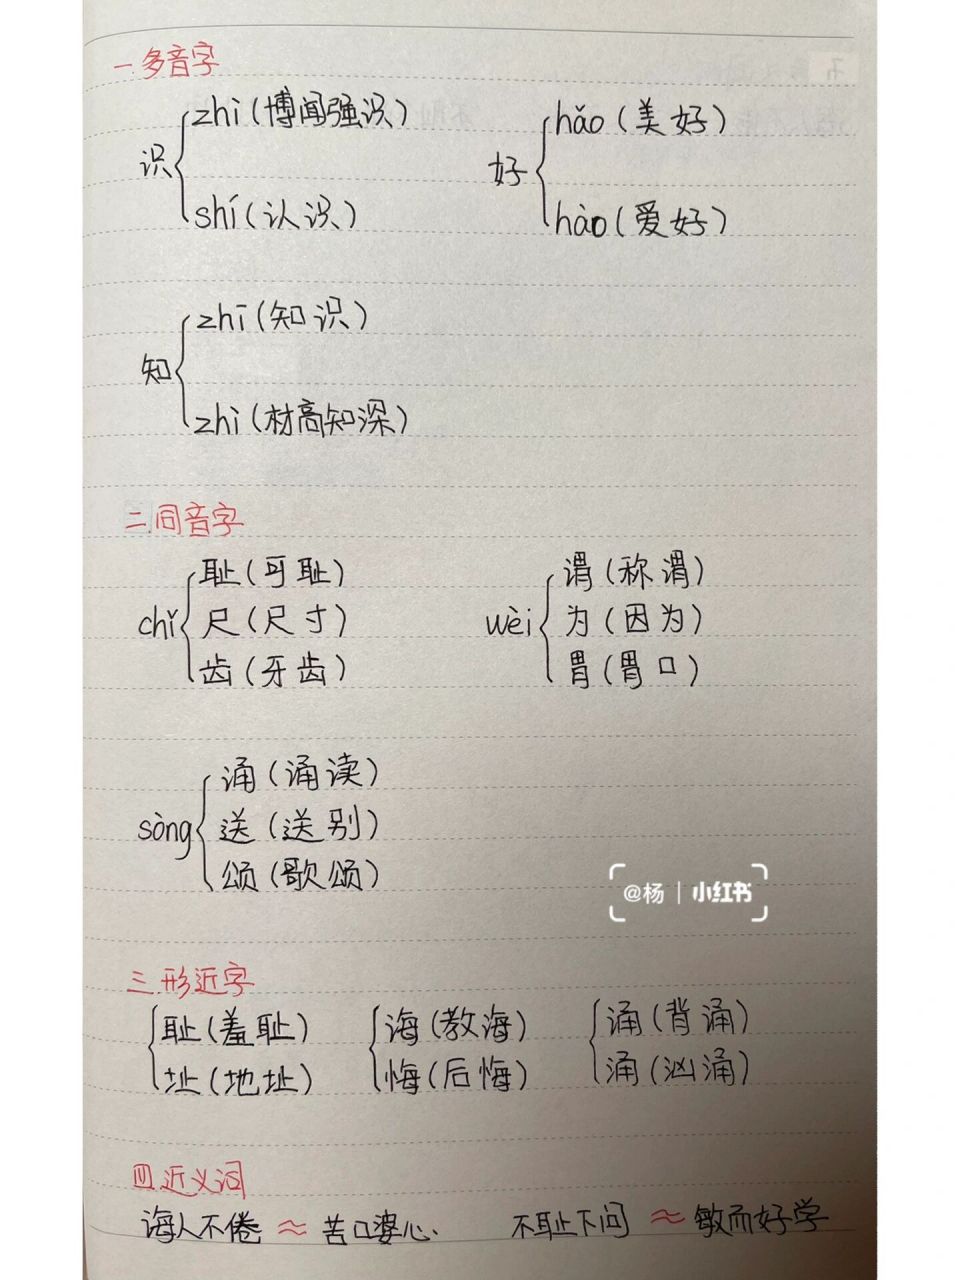 一.多音字
识 zhì(博闻强识)
shí(认识)
好 hǎo(美好)
hào(爱好)
知 zhī(知识)
zhì(材高知深)
二.同音字
chǐ 耻(可耻)
尺(尺寸)
齿(牙齿)
wèi 谓(称谓)
为(因为)
胃(胃口)
sòng 诵(诵读)
送(送别)
颂(歌颂)
@杨 | 小红书
三.形近字
耻(羞耻)
址(地址)
诲(教诲)
悔(后悔)
诵(背诵)
涌(汹涌)
四.近义词
诲人不倦 ≈ 苦口婆心. 不耻下问 ≈ 敏而好学